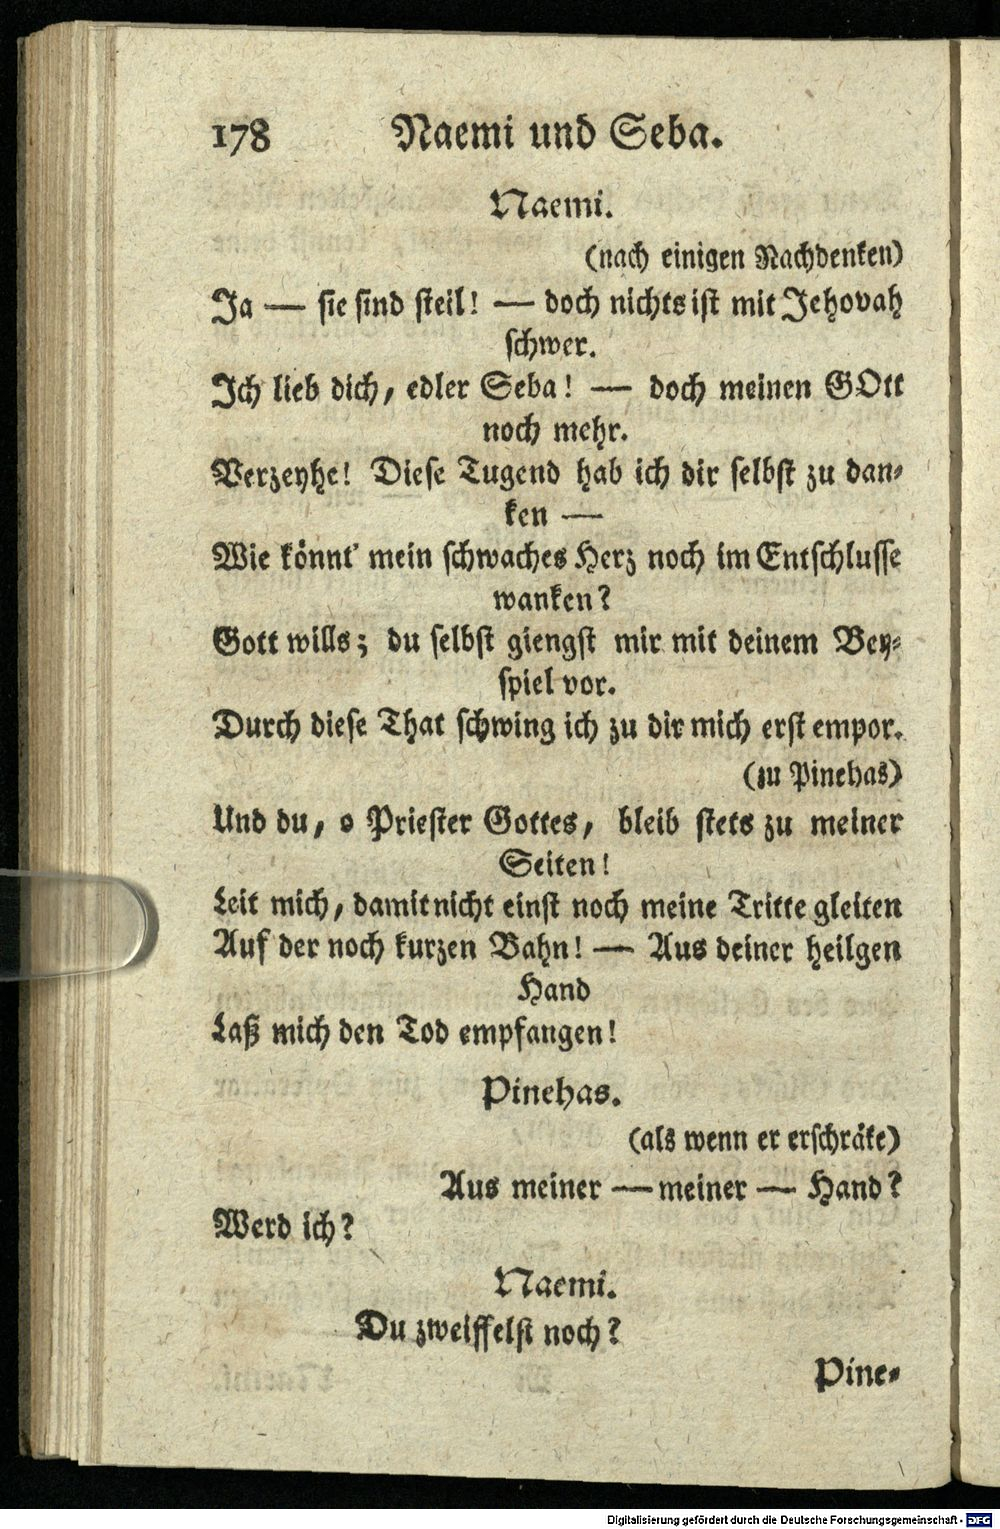 178 Naemi und Seba.
Naemi.
(nach einigen Nachdenken)
Ja — sie sind steil! — doch nichts ist mit Jehovah
schwer.
Ich lieb dich, edler Seba! — doch meinen GOtt
noch mehr.
Verzeyhe! Diese Tugend hab ich dir selbst zu dan-
ken —
Wie könnt' mein schwaches Herz noch im Entschlusse
wanken?
Gott wills; du selbst giengst mir mit deinem Bey-
spiel vor.
Durch diese That schwing ich zu dir mich erst empor.
(zu Pinehas)
Und du, o Priester Gottes, bleib stets zu meiner
Seiten!
Leit mich, damit nicht einst noch meine Tritte gleiten
Auf der noch kurzen Bahn! — Aus deiner heilgen
Hand
Laß mich den Tod empfangen!
Pinehas.
(als wenn er erschräke)
Aus meiner — meiner — Hand?
Werd ich?
Naemi.
Du zweiffelst noch?
Pine-
Digitalisierung gefördert durch die Deutsche Forschungsgemeinschaft - DFG